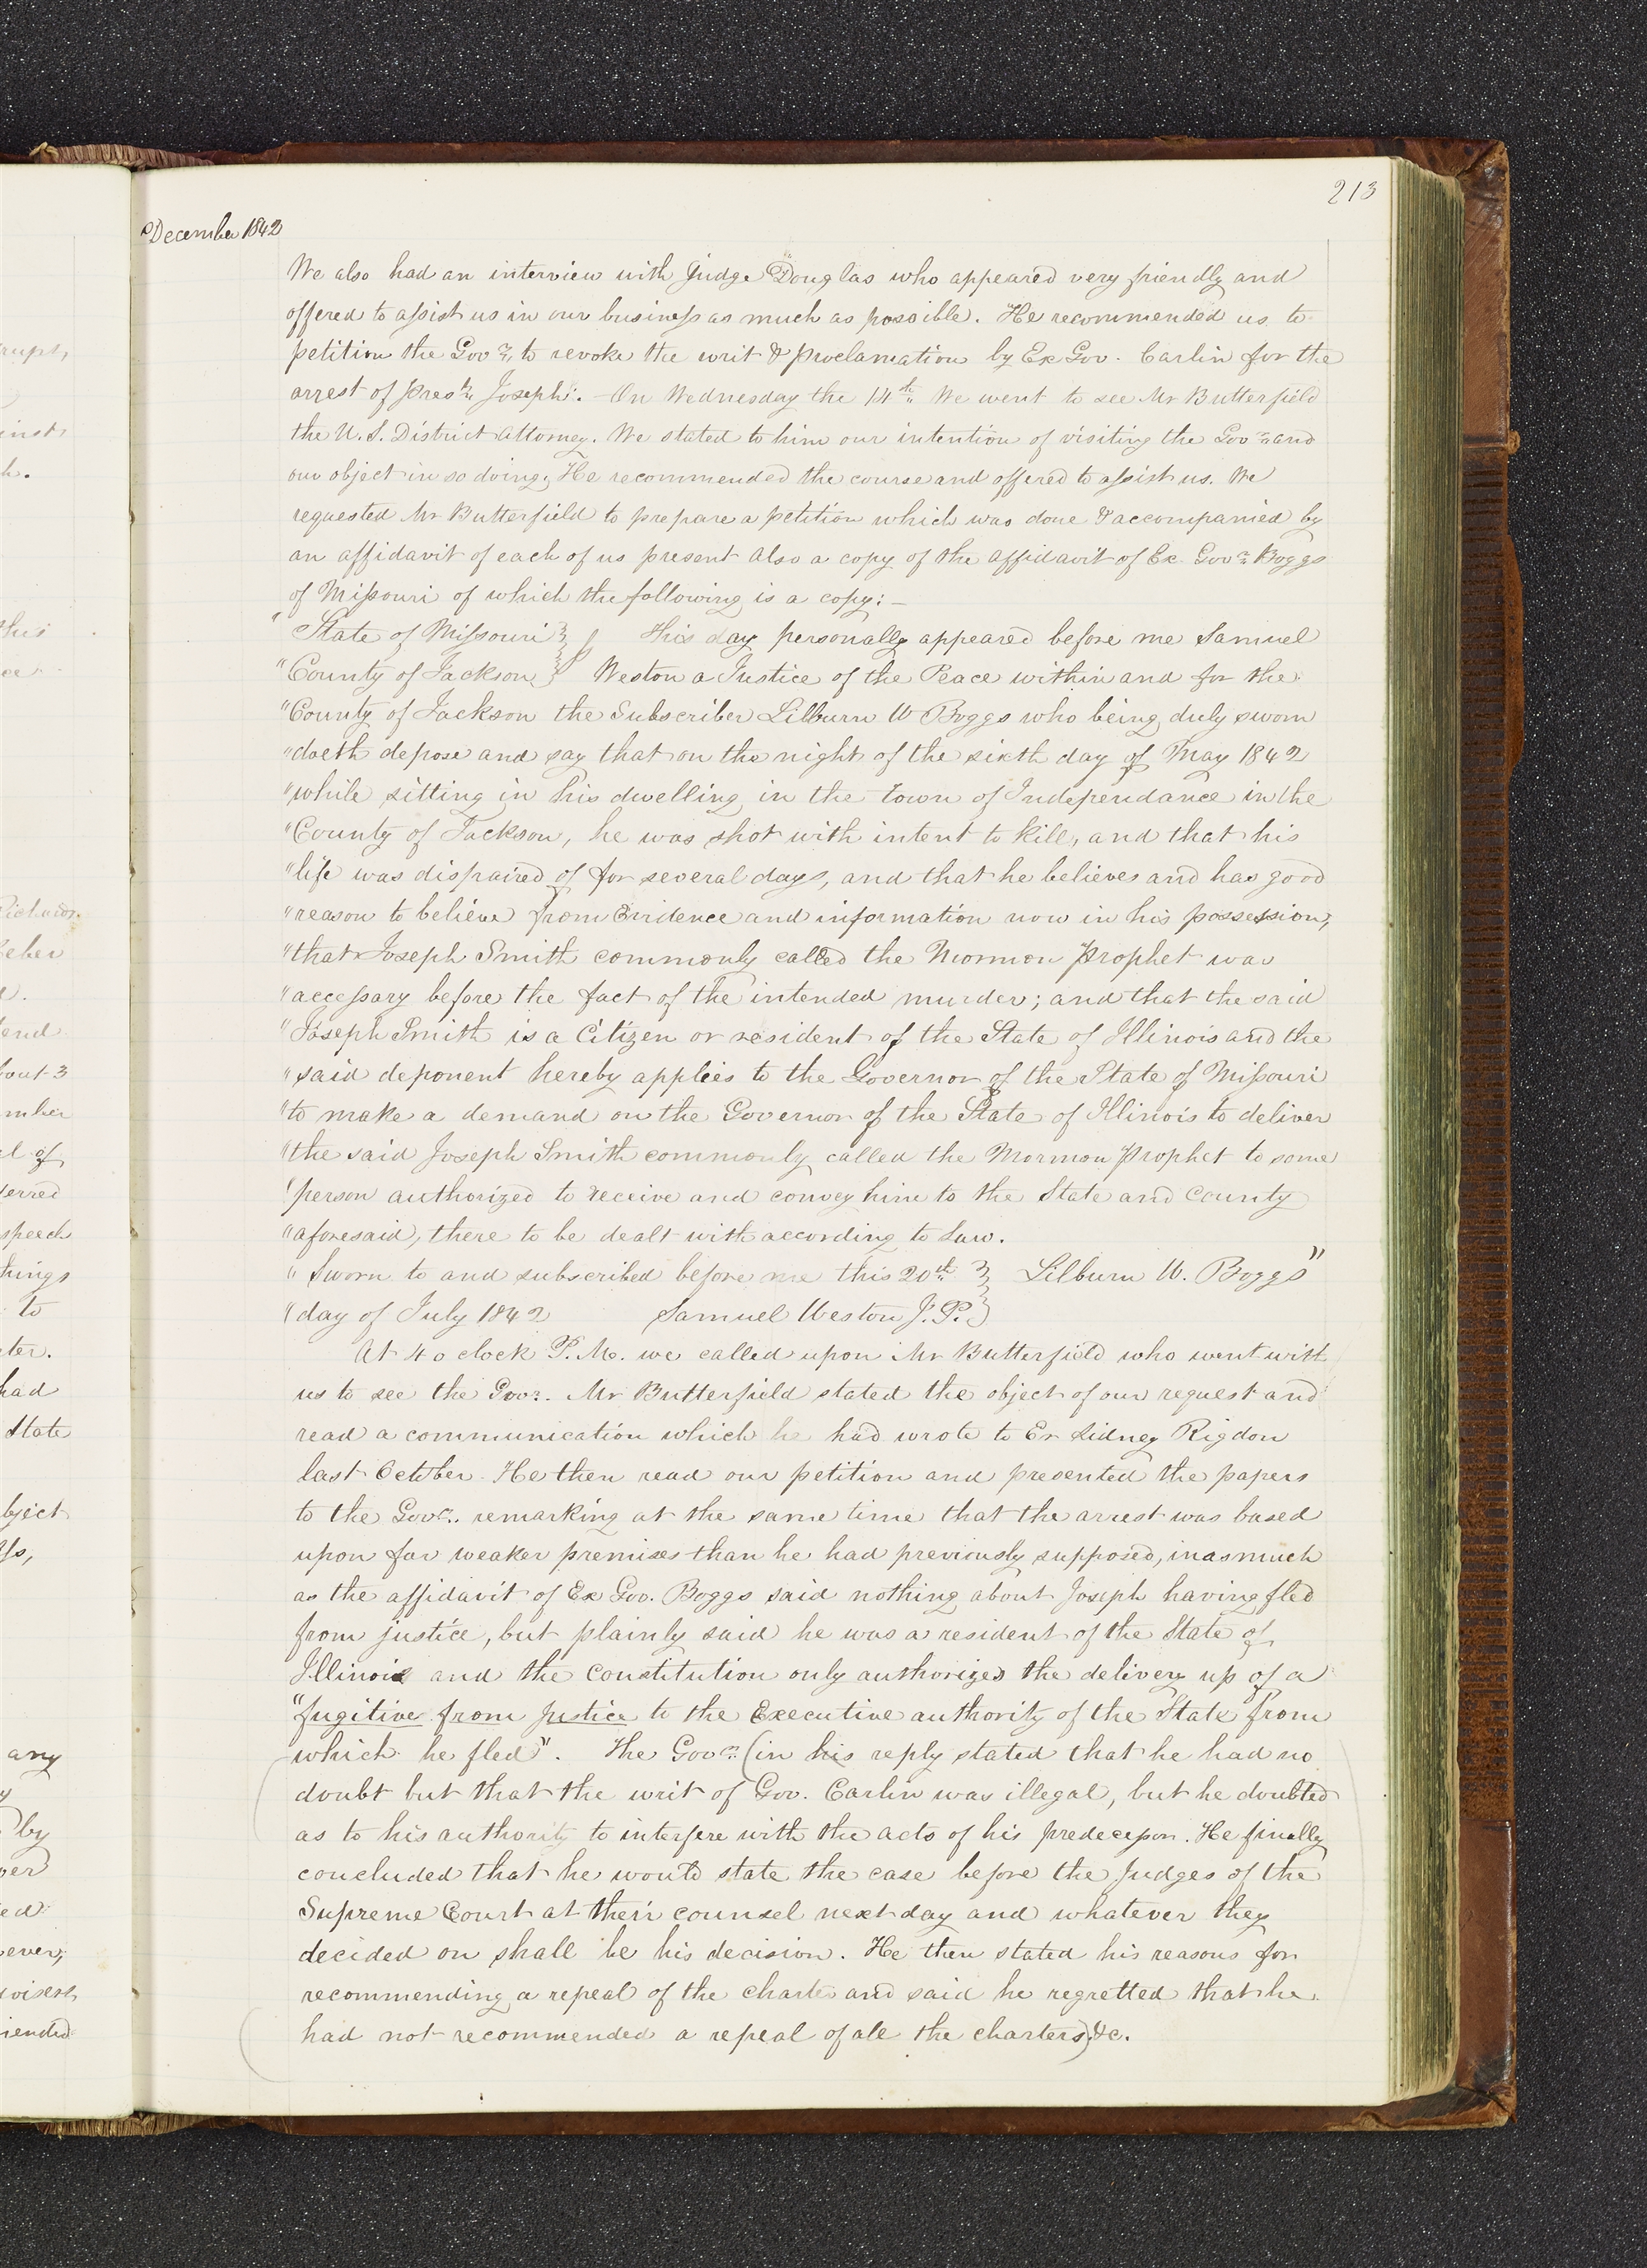 213
December 1842
We also had an interview with Judge Douglas who appeared very friendly and
offered to assist us in our business as much as possible. He recommended us to
petition the Govr. to revoke the writ & proclamation by Ex Gov. Carlin for the
arrest of Prest. Joseph. - On Wednesday the 14th. We went to see Mr Butterfield
the U. S. District Attorney. We stated to him our intention of visiting the Govr. and
our object in so doing, He recommended the course and offered to assist us. We
requested Mr Butterfield to prepare a petition which was done & accompanied by
an affidavit of each of us present also a copy of the affidavit of Ex Govr. Boggs
of Missouri of which the following is a copy:—
"State of Missouri } This day personally appeared before me Samuel
"County of Jackson } Weston a Justice of the Peace within and for the
"County of Jackson the Subscriber Lilburn W Boggs who being duly sworn
"doeth depose and say that on the night of the sixth day of May 1842
"while sitting in his dwelling in the town of Independance in the
"County of Jackson, he was shot with intent to kill, and that his
"life was dispaired of for several days, and that he believes and has good
"reason to believe from Evidence and information now in his possession,
"that Joseph Smith commonly called the Mormon Prophet was
"accessary before the fact of the intended murder; and that the said
"Joseph Smith is a Citizen or resident of the State of Illinois and the
"said deponent hereby applies to the Governor of the State of Missouri
"to make a demand on the Governor of the State of Illinois to deliver
"the said Joseph Smith commonly called the Mormon Prophet to some
"person authorized to receive and convey him to the State and county
"aforesaid, there to be dealt with according to Law.
"Sworn to and subscribed before me this 20th. } Lilburn W. Boggs"
"day of July 1842 Samuel Weston J. P. }
At 4 o clock P. M. we called upon Mr Butterfield who went with
us to see the Govr. Mr Butterfield stated the object of our request and
read a communication which he had wrote to Er Sidney Rigdon
last October. He then read our petition and presented the papers
to the Govr. remarking at the same time that the arrest was based
upon far weaker premises than he had previously supposed, inasmuch
as the affidavit of Ex Gov. Boggs said nothing about Joseph having fled
from justice, but plainly said he was a resident of the State of
Illinois and the constitution only authorizes the delivery up of a
"fugitive from justice to the Executive authority of the State from
which he fled". The Govr. (in his reply stated that he had no
doubt but that the writ of Gov. Carlin was illegal, but he doubted
as to his authority to interfere with the acts of his predecessor. He finally
concluded that he would state the case before the Judges of the
Supreme Court at their counsel next day and whatever they
decided on shall be his decision. He then stated his reasons for
recommending a repeal of the charter and said he regretted that he
had not recommended a repeal of all the charters) &c.